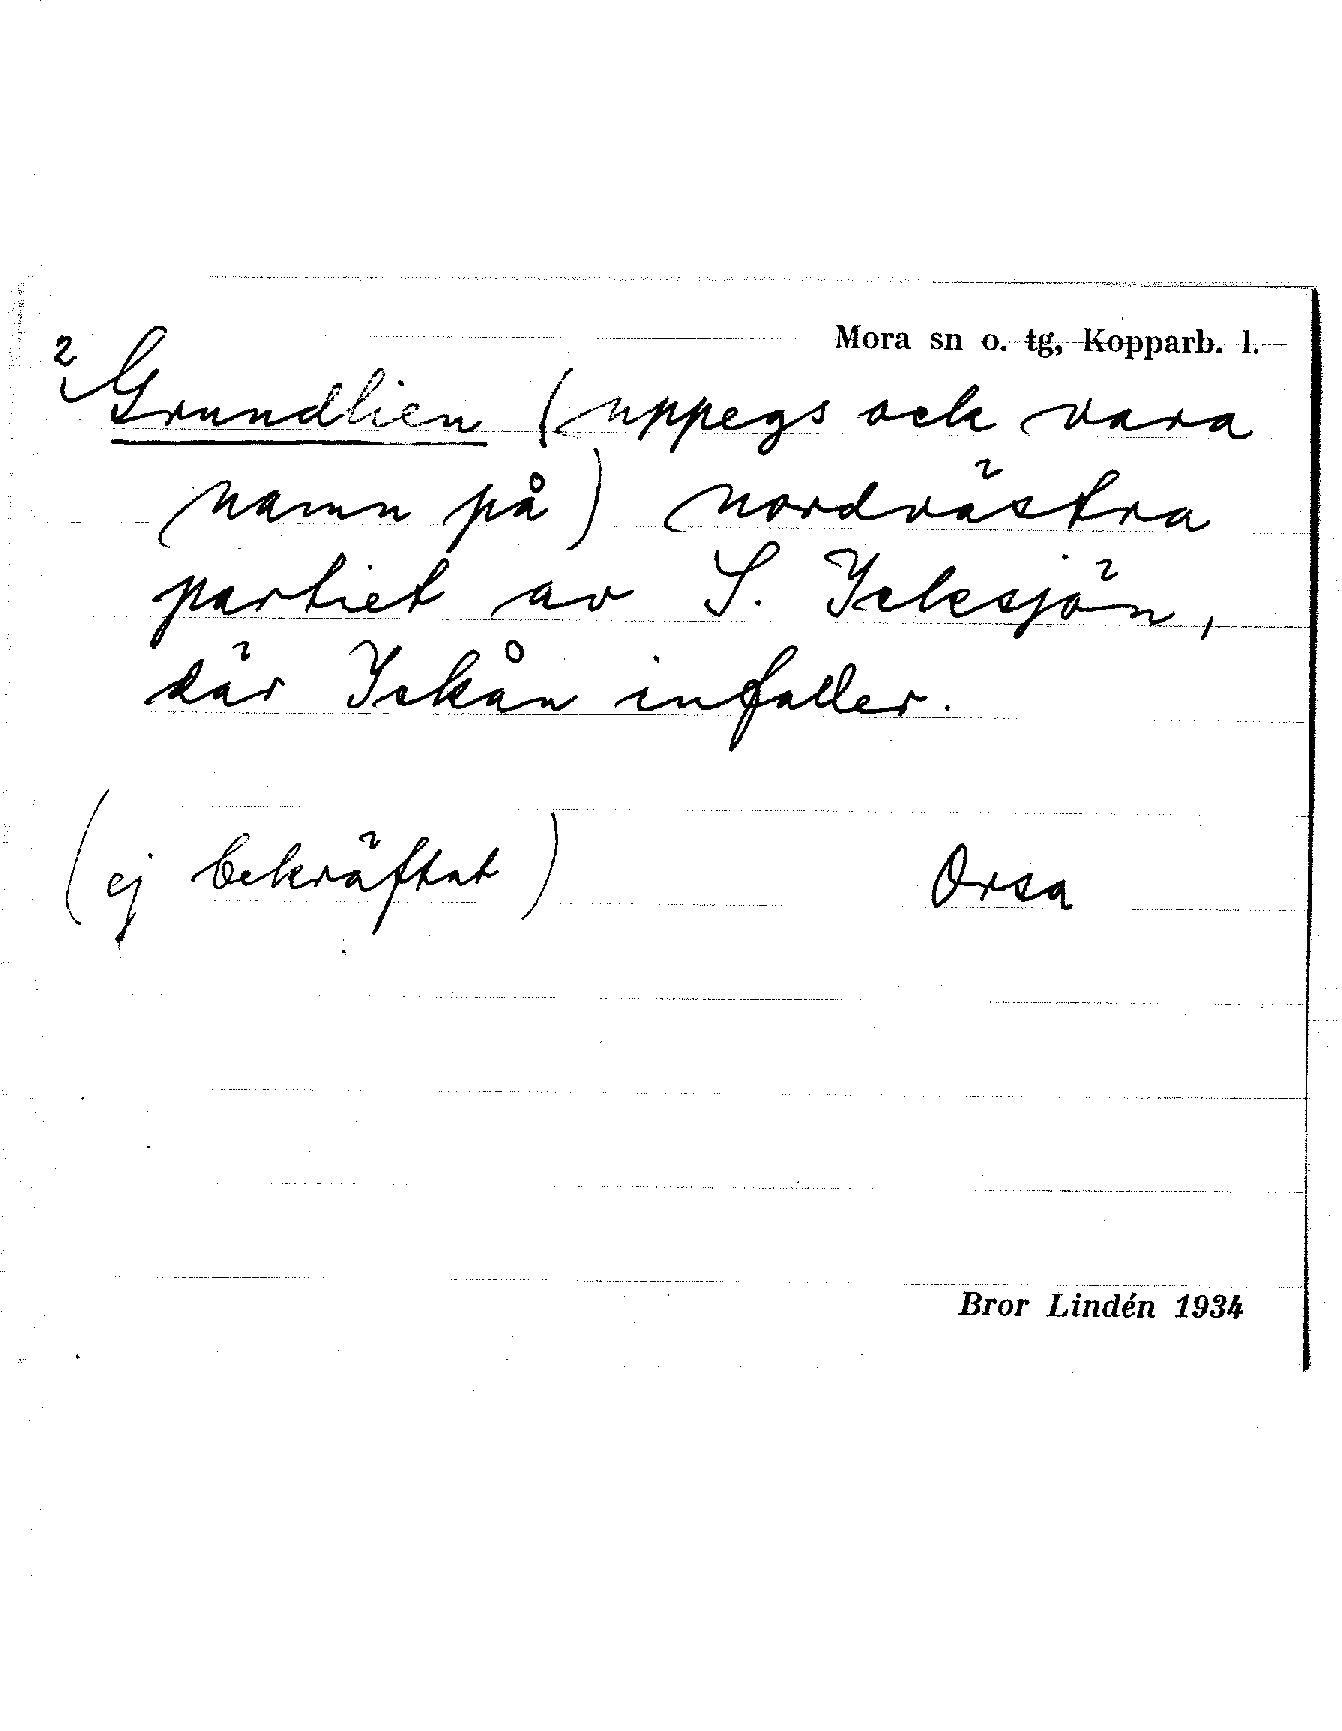 Mora sn o. tg, Kopparb. l.
2 Grundlien (uppegs ock vara
namn på) nordvästra
partiet av S. Ycksjön,
där Yckån infaller.
(ej bekräftat) Orsa
Bror Lindén 1934